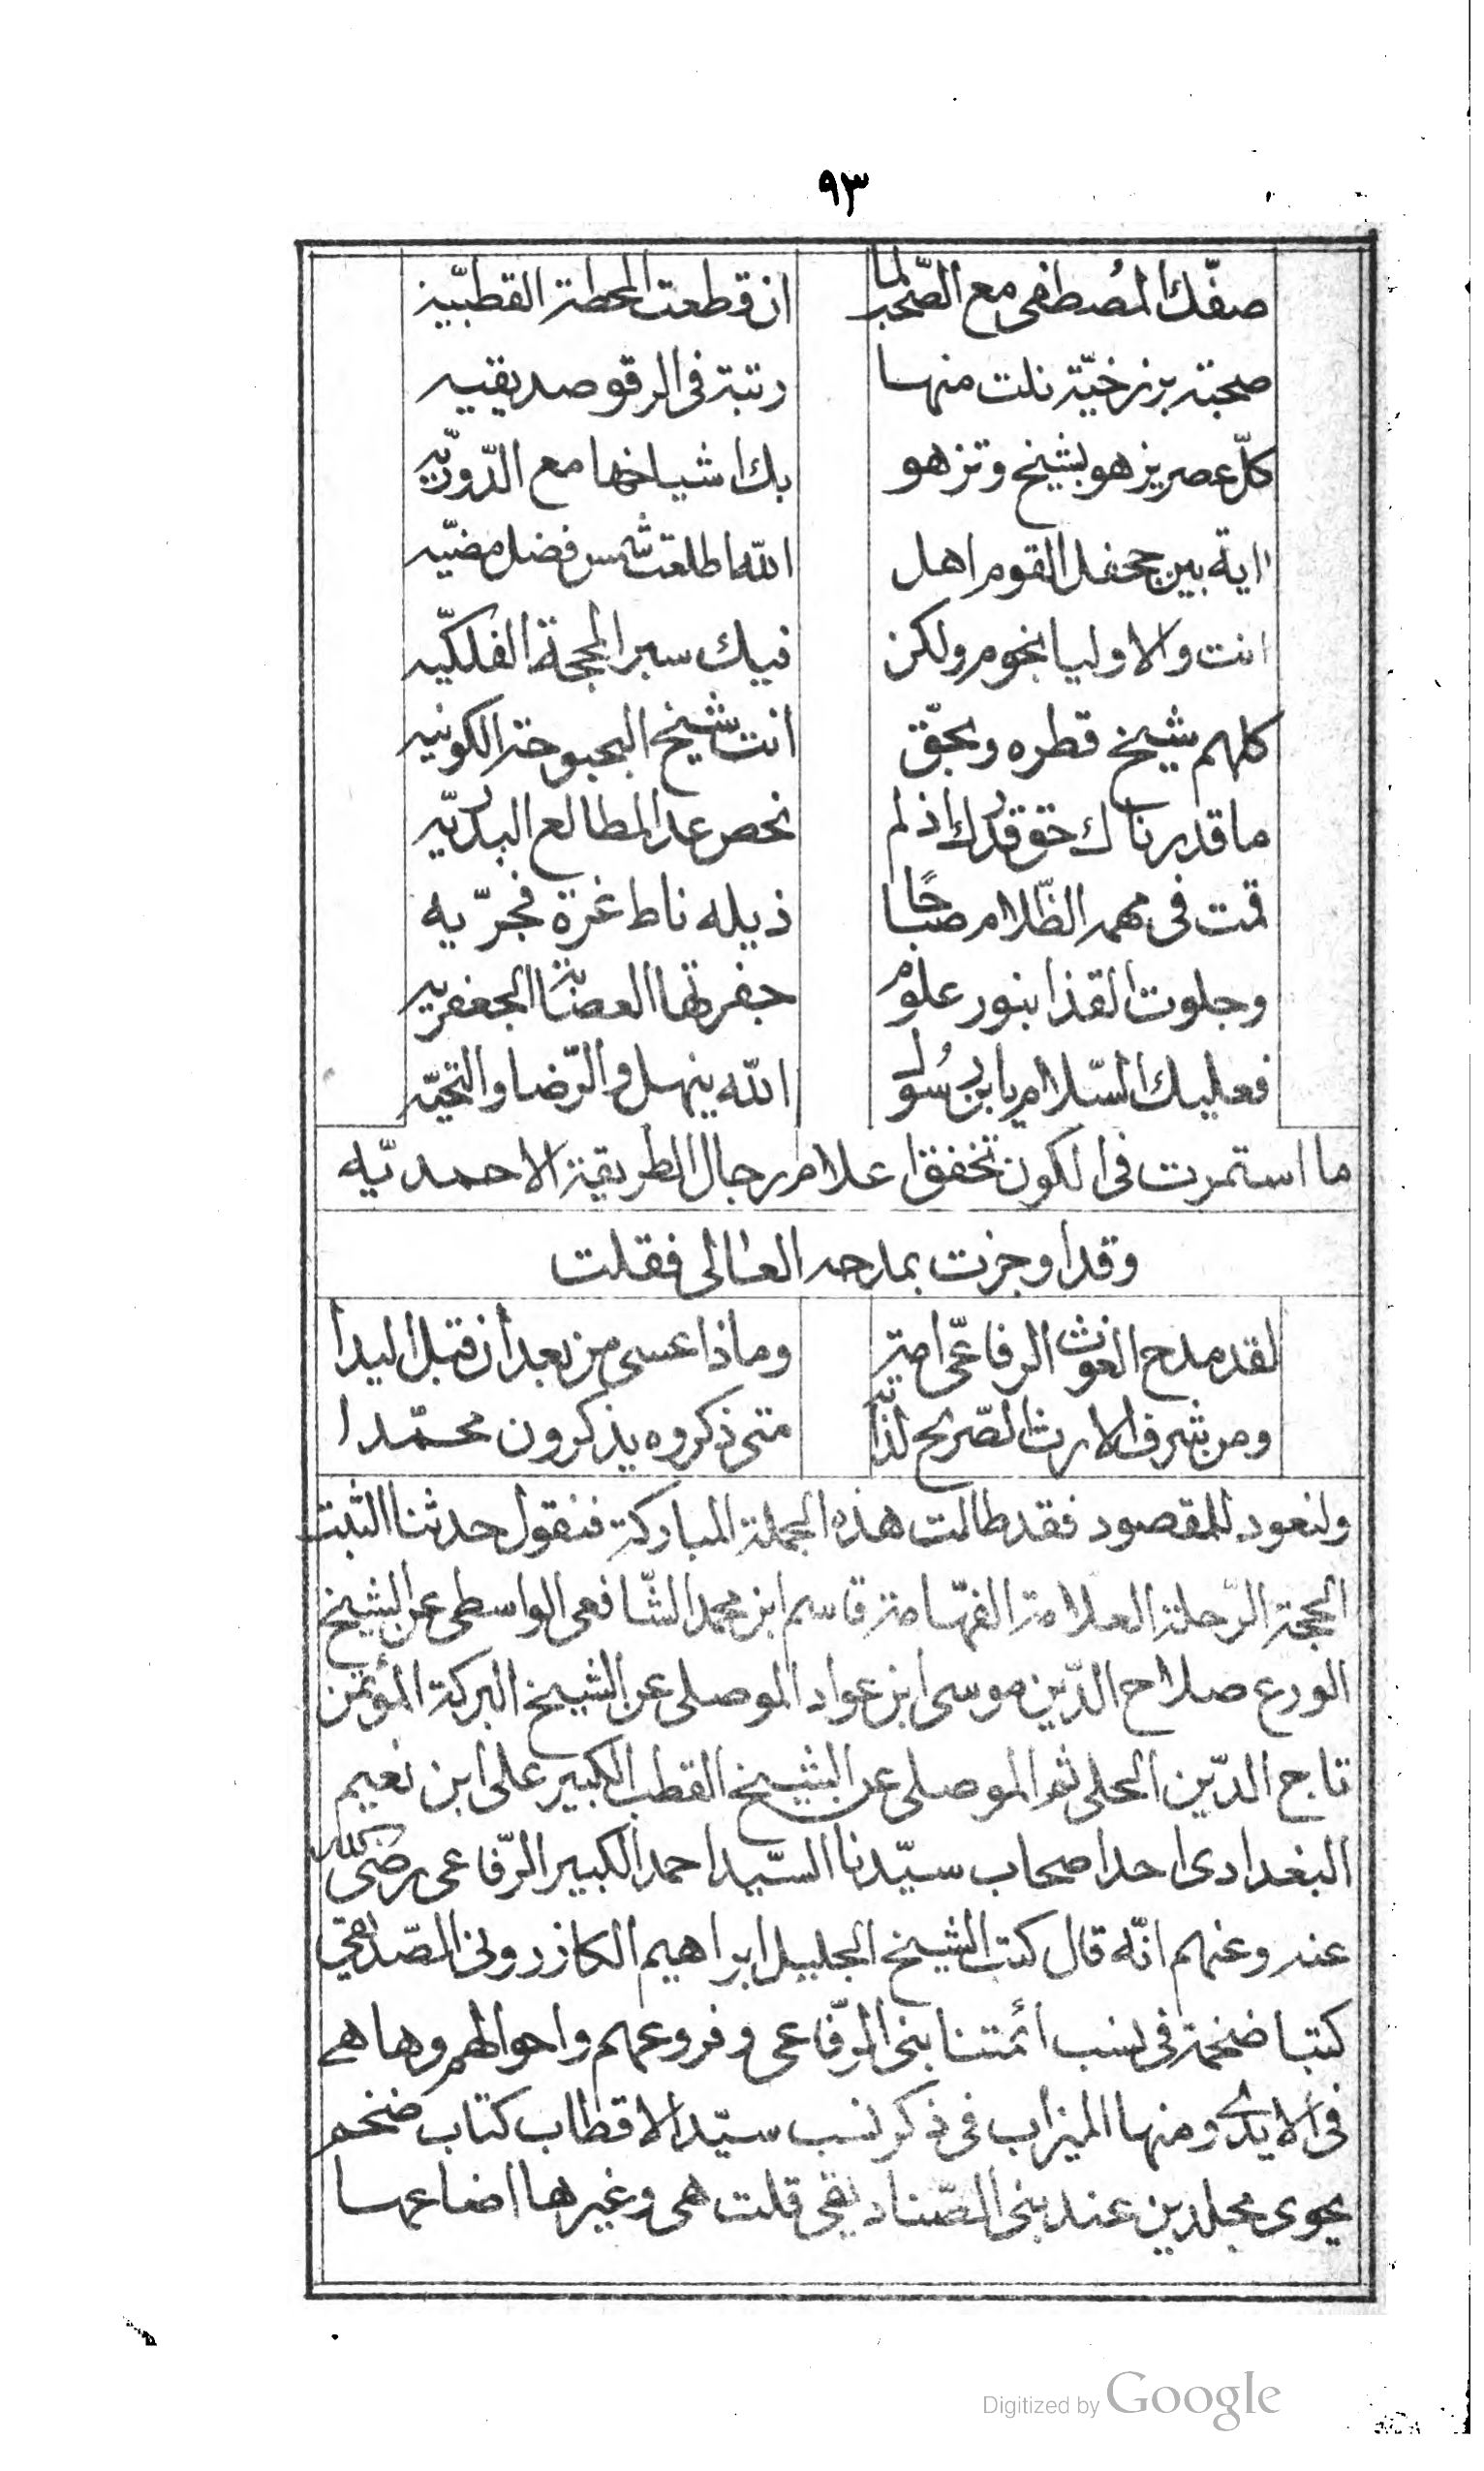 ٩٣
صفّك المُصطفى مع الصّحب لما ان قطعت المحطة القطبّية
صحبة برزخيّة نلت منها رتبة فى الرقو صديقيه
كلّ عصر يزهو بشيخ وتزهو بك اشياخها مع الدّوريّه
اية بين جحفل القوم اهل الله اطلعت شمس فضل مضيّه
انت والاوليا نجوم ولكن فيك سير المحجة الفلكيّه
كلهم شيخ قطره وبحقّ انت شيخ البحبوحة الكونيه
ما قدرناك حق قدرك اذ لم نحص عد المطالع البدريّه
قمت فى مهمه الظّلام صباحًا ذيله ناط غرة فجرّيه
وجلوت القذا بنور علوم جفرتها العصابة الجعفريه
فعليك السّلام يا ابن رسُول الله ينهل والرّضا والتحيّه
ما استمرت فى الكون تخفق اعلام رجال الطريقة الاحمديّه
وقد اوجزت بمدحه العالى فقلت
لقد مدح الغوث الرفاعّى امة وماذا عسى من بعد ان قبل اليدا
ومن شرف الارث الصّريح لذاته متى ذكروه يذكرون محمّدا
ولنعود للمقصود فقد طالت هذه الجملة المباركة فنقول حدثنا الثبت
الحجة الرّحلة العلامة الفهّامة قاسم ابن محمد الشّافعى الواسطى عن الشيخ
الورع صلاح الدّين موسى ابن عواد الموصلى عن الشيخ البركة المؤتمن
تاج الدّين الحلى ثم الموصلى عن الشيخ القطب الكبير على ابن نعيم
البغدادى احد اصحاب سيّدنا السّيد احمد الكبير الرّفاعى رضى الله
عنه وعنهم انّه قال كتب الشيخ الجليل ابراهيم الكازرونى الصّديقى
كتبا ضخمة فى نسب ائمتنا بنى الرّفاعى وفروعهم واحوالهم وها هى
فى الايدى ومنها الميزاب فى ذكر نسب سيّد الاقطاب كتاب ضخم
يحوى مجلدين عند بنى الصّناديقى قلت هى وغيرها اضاعها
Digitized by Google